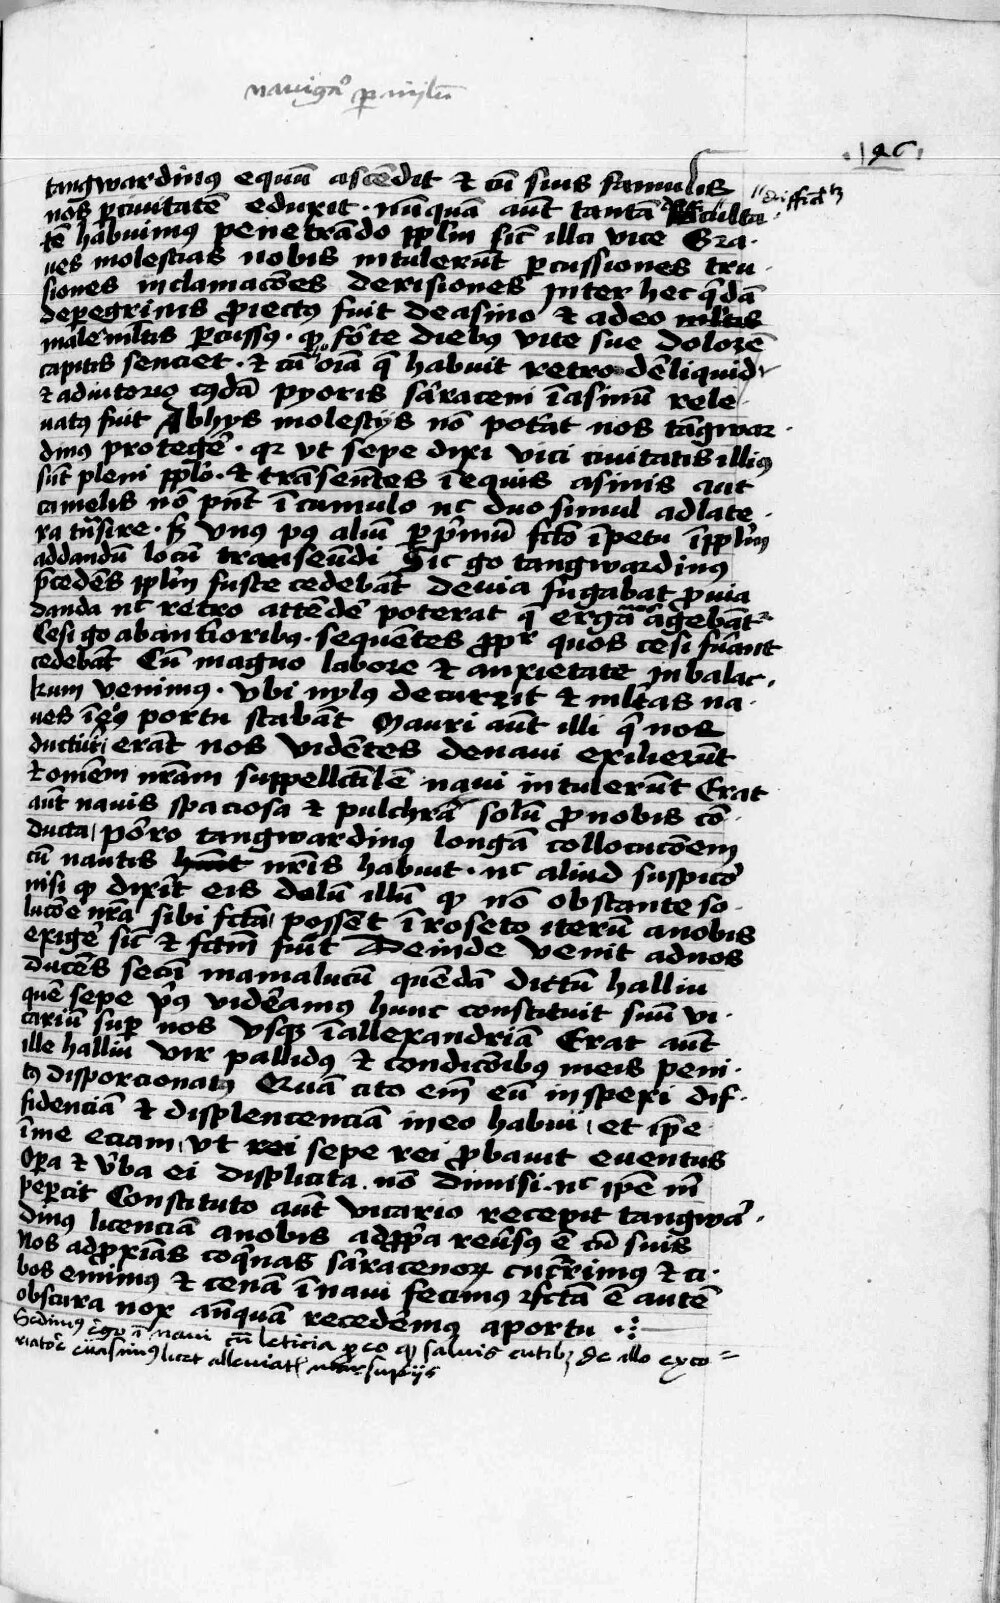 nauigaͦ p nilū
.|96|
tangwardinꝰ equū ascēdit & cū suis famulis
nos p ciuitatē eduxit · nūquā aūt tantā difficulta · "difficl't
tē habuimus penetrādo pplm sic illa vice Gra·
ues molestias nobis intulerūt pcussiones tru·
siones inclamacōes derisiones Inter hec qdā
depegrinis piectꝰ fuit deasino & adeo
male mltis pcussꝰ · qp forte diebꝰ vite sue dolorē
capitis senciet · & cū oīa q̄ habuit retro dēliquid
& adiutorio cuiꝰdā pyoris saraceni ī asinū rele
uatꝰ fuit Abhys molestijs nō potat nos tāgwar·
dinꝰ protegē · qr vt sepe dixi vici ciuitatis illiꝰ
sūt pleni pplo · & trāseūtes ī equis asinis aut
camelis nō pūt ī cumulo nc duo simul adlate·
ra tnsire · s vnꝰ pꝰ aliū p pmū fctō īpetu ī pplm
addandū locū transeūdi Sic go tangwardinꝰ
pcedēs pplm fuste cedebāt deuia fugabat p via
danda nc retro attēdē poterat q̄ erga nos agebāt
Cesi go ab anterioribꝰ · sequētes ppr quos cesi fūant
cedebāt Cū magno labore & anxietate In balac·
kum venimus · vbi nylꝰ decurrit & mltas na·
ues ī eiꝰ portu stabāt Mauri aūt illi q̄ nos
ducturi erāt nos vidētes denaui exilierūt
& omēm nrām suppellctilē naui intulerūt Erat
aūt nauis spaciosa & pulchrā solū p nobis cō·
ducta | porro tangwardinꝰ longā collocucōem
cū nautis nris habuit · nc aliud suspicor
nisi qp dixit eis dolū illū qp nō obstante so·
lucōe nra sibi fcta | possent ī roseto iterū anobis
exigē sic & fctm fuit Deinde venit adnos
ducēs secū mamalucū quēdā dictū halliu
quē sepe pꝰ videamus hunc constituit suū vi·
cariū sup nos vsqꝫ ī allexandriā Erat aūt
ille halliu vir pallidꝰ & condicōibꝰ meis peni·
tꝰ disporcionatꝰ Quā cito em eū inspexi dif·
fidenciā & displencenciā ineo habui | et ipe
īme eciam | vt rei sepe rei pbauit euentus
Opa & vba ei displicita nō dimisi · nc ipe m
pepercit Constituto aūt vicario recepit tangwar·
dinꝰ licenciā anobis adppa reusꝰ ē cū suis
Nos adpximas coqnas saracenoꝝ cucrrimꝰ & ci·
bos emimꝰ & cenā ī naui fecimꝰ & fctā ē autē
obscura nox an̄quā recedēmꝰ aportu
Sedimꝰ ego ī naui cū leticia p eo qp saluis cutibꝫ de illo exco=
riatore euasimꝰ licet alleuiatis marsupijs